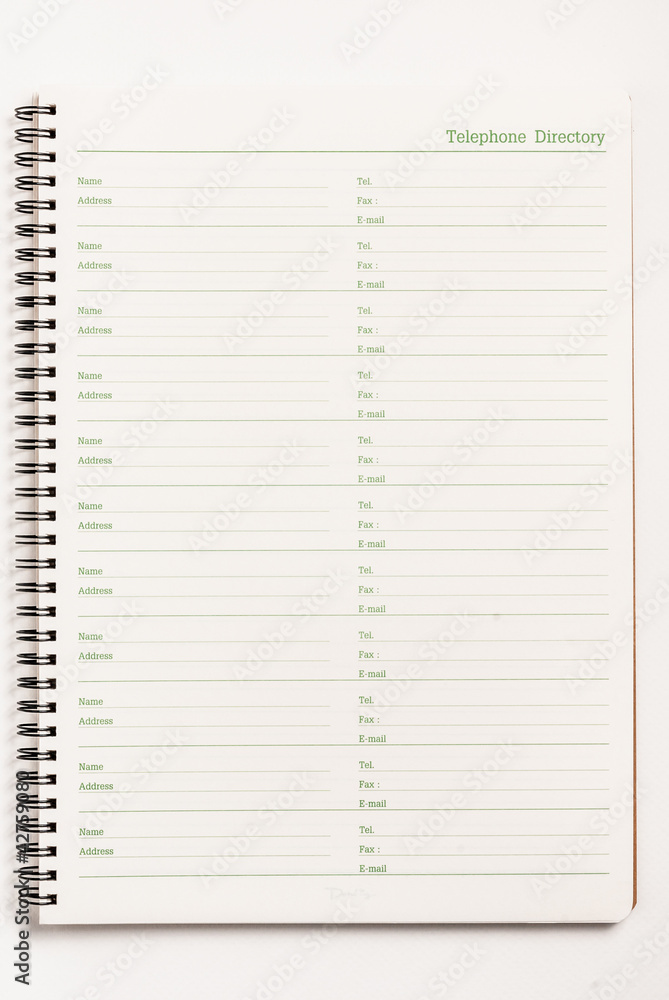 Telephone Directory
Name Tel.
Address Fax :
E-mail
Name Tel.
Address Fax :
E-mail
Name Tel.
Address Fax :
E-mail
Name Tel.
Address Fax :
E-mail
Name Tel.
Address Fax :
E-mail
Name Tel.
Address Fax :
E-mail
Name Tel.
Address Fax :
E-mail
Name Tel.
Address Fax :
E-mail
Name Tel.
Address Fax :
E-mail
Name Tel.
Address Fax :
E-mail
Name Tel.
Address Fax :
E-mail
Adobe Stock | #42759080